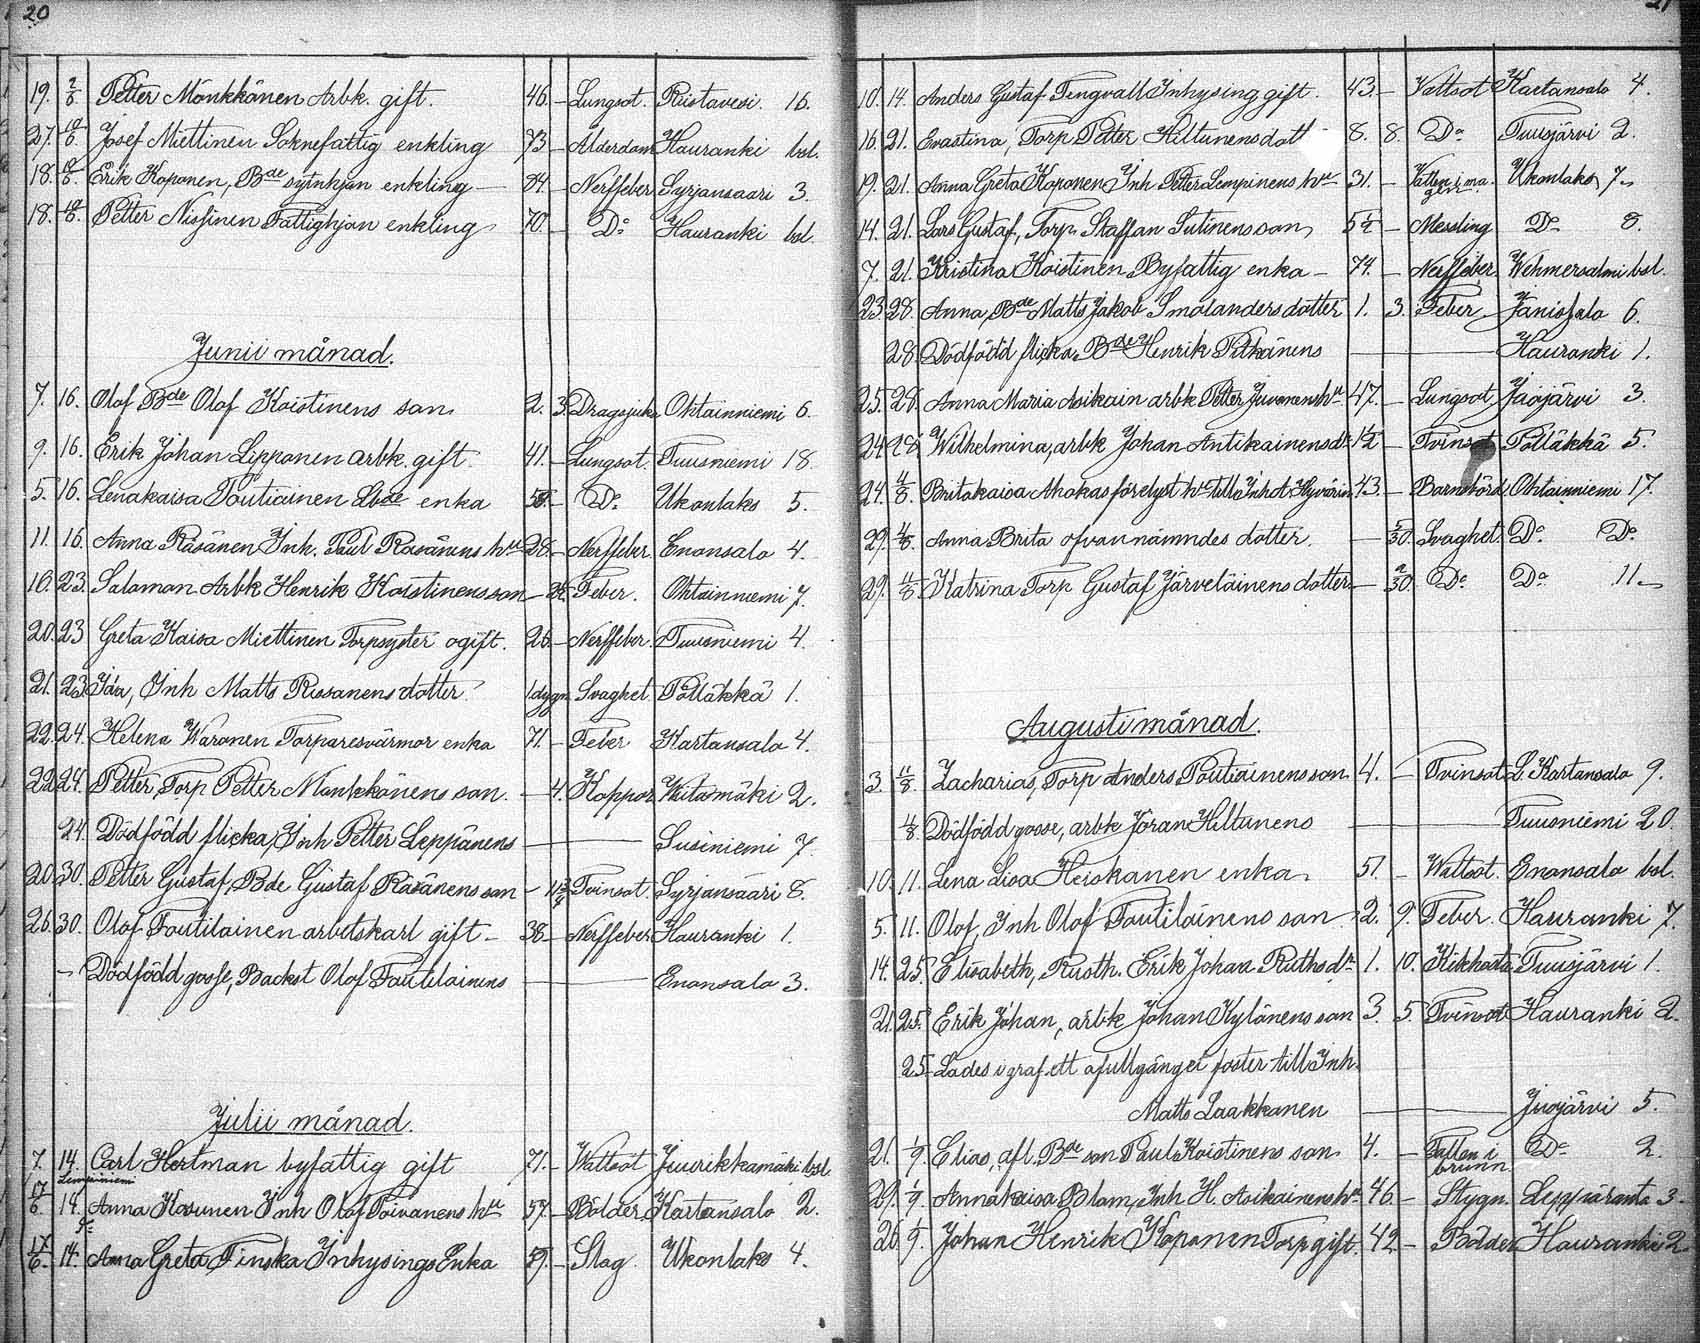 20
19. 2/6 Petter Mönkkänen Arbk. gift. 46. – Lungsot. Riistavesi. 16.
27. 10/6 Josef Miettinen Soknefattig enkling 73 – Ålderdom Hauranki bsl.
18. Erik Koponen, Bde sytnhjon enkling 84. – Nerffeber Syrjansaari 3.
18. Petter Nissinen Fattighjon enkling 70. – Do Hauranki bsl.
Junii månad.
7. 16. Olof Bde Olof Koistinens son 2. 3. Dragsjuka Ohtainniemi 6.
9. 16. Erik Johan Lipponen arbk. gift. 41. – Lungsot. Tuusniemi 18.
5. 16. Lenakaisa Poutiainen Lbde enka – Do Ukonlaks 5.
11. 16. Anna Räsänen Inh. Paul Räsänens hu 28. – Nerffeber. Enonsalo 4.
16. 23. Salomon Arbk Henrik Koistinens son – Feber. Ohtainniemi 7.
20. 23 Greta Kaisa Miettinen Torpsyster ogift. 26. – Nerffeber. Tuusniemi 4.
21. 23 Inh Matts Rissanens dotter 1 dygn Svaghet. Pölläkkä 1.
22. 24. Helena Waronen Torparesvärmor enka 71. – Feber Kartansalo 4.
22. 24. Petter, Torp Petter Mönkkönens son. – 4. Koppor 2.
24. Dödfödd flicka, Inh Petter Leppänens Susiniemi 7.
20. 30. Petter Gustaf, Bde Gustaf Räsänens son – Tvinsot. Syrjänsaari 8.
26. 30. Olof Toutilainen arbetskarl gift – 38 – Nerffeber Hauranki 1.
– Dödfödd gosse, Backst Olof Toutilainens Enonsalo 3.
Julii månad.
7. 14. Carl Hertman byfattig gift 71. – Wattsot Juurikkamäki bsl
Lempiniemi
17/6 14. Anna Kosunen Inh Olof Toivanens hu 57. – Bölder, Kartansalo 2.
17/6 14. Anna Greta Finska Inhysings Enka 59. – Slag. Ukonlaks 4.
21
10. 14. Anders Gustaf Tengvall Inhysing gift. 43. – Vattsot Kartansalo 4.
16. 21. Evastina, Torp Petter Hiltunens dott 8. 8. Do Tuusjärvi 2.
19. 21. Anna Greta Koponen Inh Petter Lempinens hu 31. – Ukonlaks 7.
14. 21. Lars Gustaf, Torp. Staffan Sutinens son 5 1/2 – Messling Do 8.
7. 21. Kristina Koistinen Byfattig enka – 74. – Nerffeber Wehmersalmi bsl.
23 28. Anna, Bde Matts Jakob Smolanders dotter 1. 3. Feber Jänissalo 6.
28 Dödfödd flicka, Bde Henrik Pitkänens Hauranki 1.
25. 28. Anna Maria Asikain arbk Petter Juvonens hu 47. – Lungsot Juojärvi 3.
24 28 Wilhelmina, arbk Johan Antikainens dr 1/2 – Tvinsot Pölläkkä 5.
24. 4/8 Britakaisa Ahokas förelyst hu till Inhot. Hyvärin 43. – Barnsbörd Ohtainniemi 17.
29. 4/8 Anna Brita ofvannämndes dotter. – 5/30 Svaghet Do Do
29. 4/8 Katrina Torp Gustaf Järveläinens dotter – Do Do 11.
Augusti månad.
3. 11/8 Zacharias, Torp Anders Poutiainens son 4. – Tvinsot L. Kartansalo 9.
Dödfödd gosse, arbk Jöran Hiltunens Tuusniemi 20.
10. 11. Lena Lisa Heiskanen enka 51 – Wattsot. Enonsalo bsl.
5. 11. Olof, Inh Olof Toutilainens son 2. 9. Feber. Hauranki 7.
14. 25. Elisabeth, Rusth. Erik Johan Ruths dr 1. 10. Kikhosta Tuusjärvi 1.
21. 25. Erik Johan, arbk Johan Kylänens son 3. 5. Tvinsot Hauranki 2.
25 Lades i graf ett ofullgånget foster till Inh.
Matts Laakkonen Juojärvi 5.
21. 1/9. Elias, afl. Bde son Paul Koistinens son 4. – Fallen i brunn Do 2.
29. 1/9 Annakaisa Blom, Inh H. Asikainens hu 46. – Stygn. Leppäranta 3.
26. 1/9. Johan Henrik Koponen Torp gift. 42 – Bölder Hauranki 2.